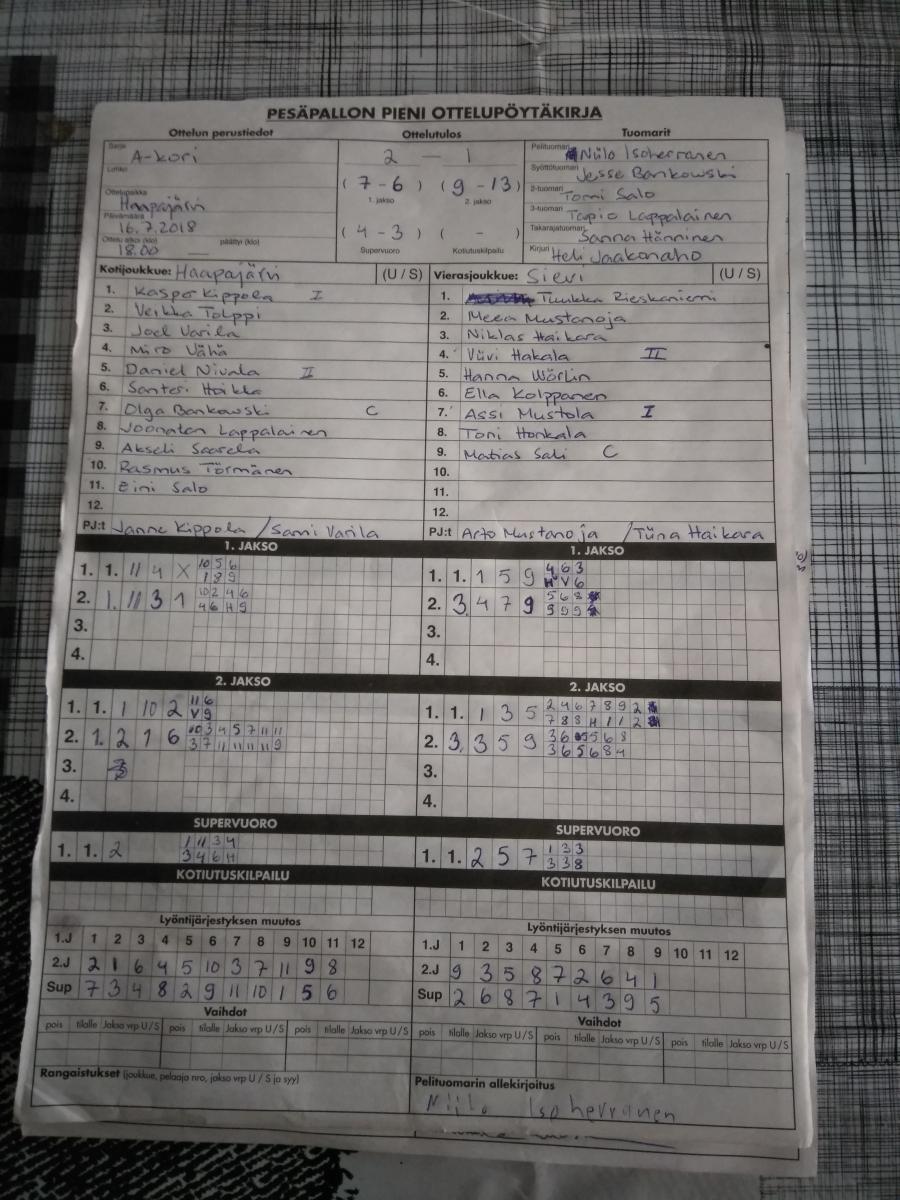 PESÄPALLON PIENI OTTELUPÖYTÄKIRJA
Ottelun perustiedot Ottelutulos Tuomarit
Sarja A-kori
Lohko
Ottelupaikka Haapajärvi
Päivämäärä 16.7.2018
Ottelu alkoi (klo) 18.00 päättyi (klo) —
2 — 1
(7-6) (9-13)
1. jakso 2. jakso
(4-3) ( - )
Supervuoro Kotiutuskilpailu
Pelituomari Niilo Isoherranen
Syöttötuomari Jesse Bankowski
2-tuomari Tomi Salo
3-tuomari Tapio Lappalainen
Takarajatuomari Sanna Hänninen
Kirjuri Heli Jaakonaho
Kotijoukkue: Haapajärvi (U / S)
1. Kasper Kippola I
2. Veikka Tolppi
3. Joel Varila
4. Miro Vähä
5. Daniel Nivala II
6. Santeri Hoikka
7. Olga Bankowski C
8. Joonatan Lappalainen
9. Akseli Saarela
10. Rasmus Törmänen
11. Eini Salo
12.
PJ:t Janne Kippola / Sami Varila
Vierasjoukkue: Sievi (U / S)
1. Tuukka Rieskaniemi
2. Meea Mustanoja
3. Niklas Haikara
4. Viivi Hakala II
5. Hanna Wörlin
6. Ella Kolppanen
7. Assi Mustola I
8. Toni Honkala
9. Matias Sali C
10.
11.
12.
PJ:t Arto Mustanoja / Tiina Haikara
1. JAKSO
1. 1. 11 4 X 10 5 6
1 8 9
2. 1. 11 3 1 10 2 4 6
4 6 H 9
3.
4.
1. JAKSO
1. 1. 1 5 9 4 6 3
H V 6
2. 3. 4 7 9 5 6 8
9 9 9
3.
4.
2. JAKSO
1. 1. 1 10 2 11 6
V 9
2. 1. 2 1 6 10 3 4 5 7 11 11
3 7 11 11 11 11 9
3.
4.
2. JAKSO
1. 1. 1 3 5 2 4 6 7 8 9 2
7 8 8 H 1 1 2
2. 3. 3 5 9 3 6 5 5 6 8
3 6 5 6 8 4
3.
4.
SUPERVUORO
1. 1. 2 1 11 3 4
3 4 6 H
SUPERVUORO
1. 1. 2 5 7 1 3 3
3 3 8
KOTIUTUSKILPAILU
KOTIUTUSKILPAILU
Lyöntijärjestyksen muutos
1.J 1 2 3 4 5 6 7 8 9 10 11 12
2.J 2 1 6 4 5 10 3 7 11 9 8
Sup 7 3 4 8 2 9 11 10 1 5 6
Lyöntijärjestyksen muutos
1.J 1 2 3 4 5 6 7 8 9 10 11 12
2.J 9 3 5 8 7 2 6 4 1
Sup 2 6 8 7 1 4 3 9 5
Vaihdot
pois tilalle Jakso vrp U / S pois tilalle Jakso vrp U / S pois tilalle Jakso vrp U / S
Vaihdot
pois tilalle Jakso vrp U / S pois tilalle Jakso vrp U / S pois tilalle Jakso vrp U / S
Rangaistukset (joukkue, pelaaja nro, jakso vrp U / S ja syy)
Pelituomarin allekirjoitus
Niilo Isoherranen